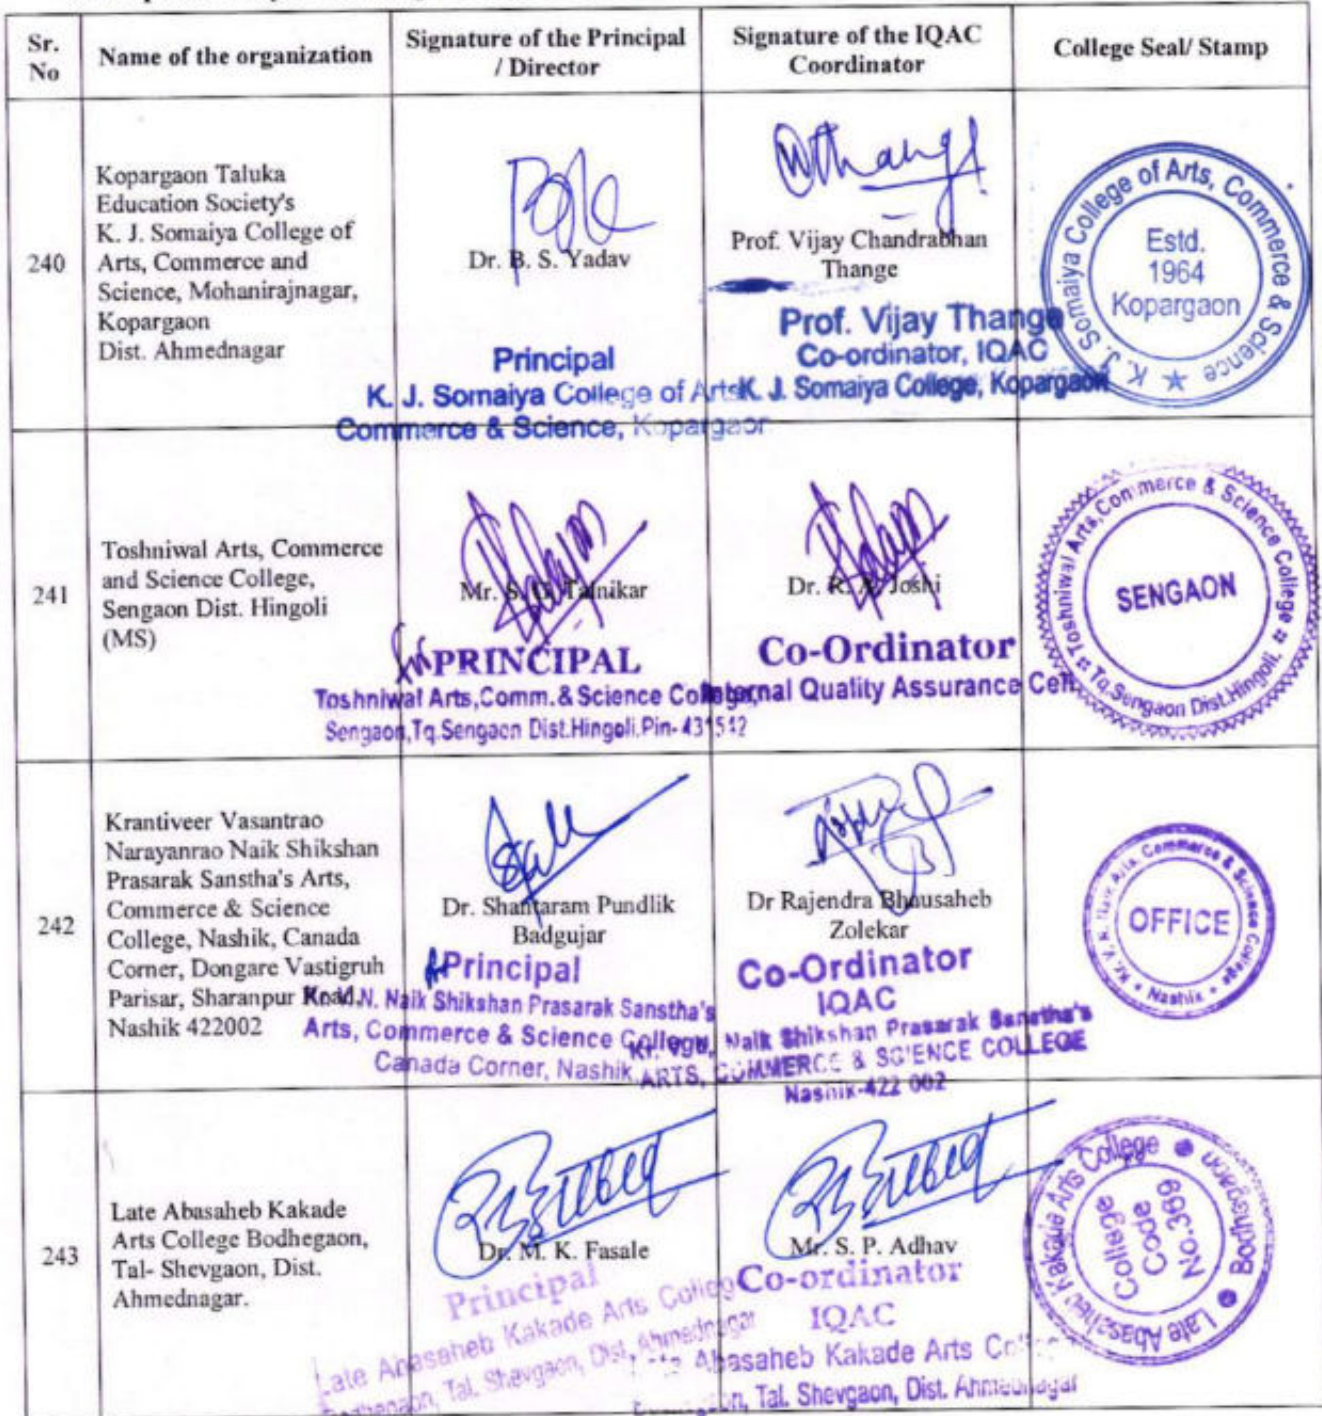 Sr. No
Name of the organization
Signature of the Principal / Director
Signature of the IQAC Coordinator
College Seal/ Stamp
240
Kopargaon Taluka
Education Society's
K. J. Somaiya College of
Arts, Commerce and
Science, Mohanirajnagar,
Kopargaon
Dist. Ahmednagar
Dr. B. S. Yadav
Principal
K. J. Somaiya College of Arts
Commerce & Science, Kopargaon
Thange
Prof. Vijay Chandrabhan
Thange
Prof. Vijay Thange
Co-ordinator, IQAC
K. J. Somaiya College, Kopargaon
K. J. Somaiya College of Arts, Commerce & Science
Estd.
1964
Kopargaon
241
Toshniwal Arts, Commerce
and Science College,
Sengaon Dist. Hingoli
(MS)
Mr. S. G. Talnikar
PRINCIPAL
Toshniwal Arts,Comm.& Science College,
Sengaon,Tq.Sengaon Dist.Hingoli.Pin-431542
Dr. R. A. Joshi
Co-Ordinator
Internal Quality Assurance Cell
Toshniwal Arts,Commerce & Science College
Tq.Sengaon Dist.Hingoli.
SENGAON
242
Krantiveer Vasantrao
Narayanrao Naik Shikshan
Prasarak Sanstha's Arts,
Commerce & Science
College, Nashik, Canada
Corner, Dongare Vastigruh
Parisar, Sharanpur Road,
Nashik 422002
Dr. Shantaram Pundlik
Badgujar
Principal
Kr. V.N. Naik Shikshan Prasarak Sanstha's
Arts, Commerce & Science College,
Canada Corner, Nashik
Dr Rajendra Bhausaheb
Zolekar
Co-Ordinator
IQAC
Naik Shikshan Prasarak Sanstha's
ARTS, COMMERCE & SCIENCE COLLEGE
Nashik-422 002
Kr. V. N. Naik Arts, Commerce & Science College
Nashik
OFFICE
243
Late Abasaheb Kakade
Arts College Bodhegaon,
Tal- Shevgaon, Dist.
Ahmednagar.
Dr. M. K. Fasale
Principal
Late Abasaheb Kakade Arts College
Bodhegaon, Tal. Shevgaon, Dist. Ahmednagar
Mr. S. P. Adhav
Co-ordinator
IQAC
Abasaheb Kakade Arts College
Tal. Shevgaon, Dist. Ahmednagar
Late Abasaheb Kakade Arts College
Bodhegaon
College
Code
No.369